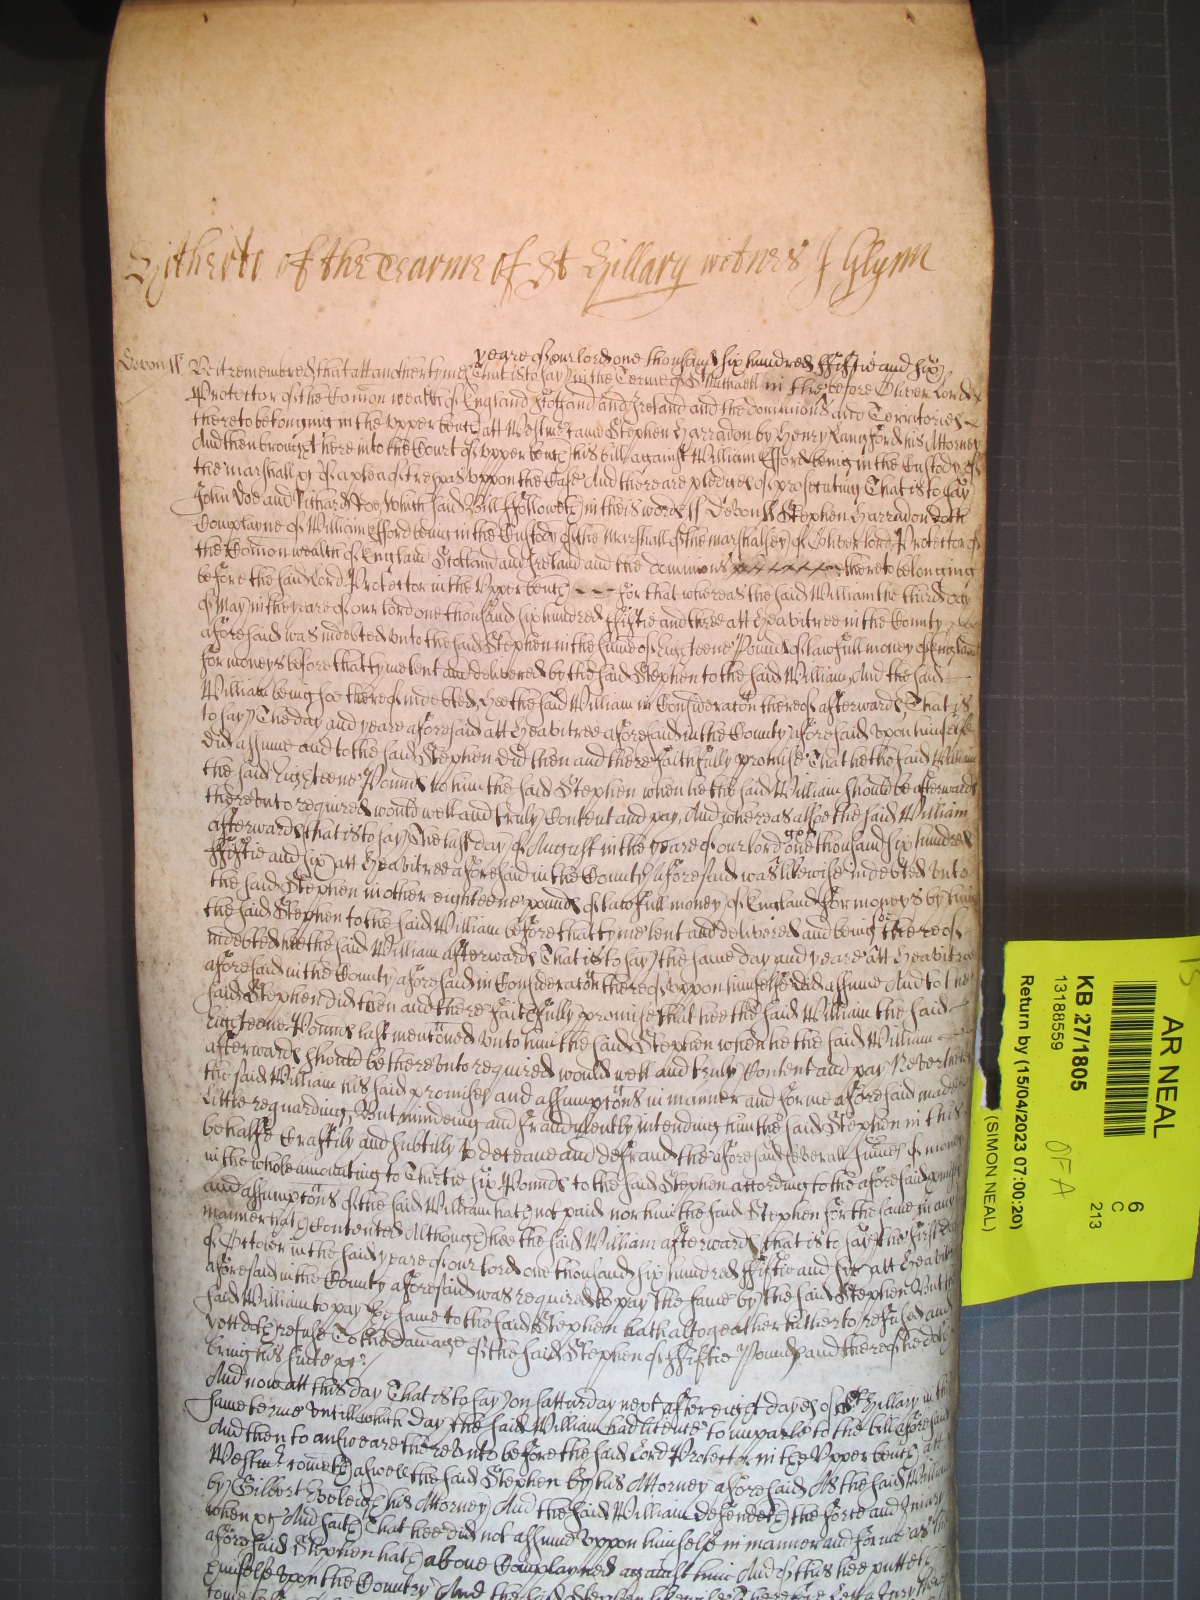 Hitherto of the Tearme of St Hillary witnes J Glynn
yeare of our lord one thousand six hundred fiftie and six
Devon ss Be it remembred that att another tyme That is to say in the Terme of St Michaell in this before Oliver Lord
Protector of the Com̄on wealth of England Scotland and Ireland and the dominions and Territories
thereto belonging in the upper bench att Westmr came Stephen Harradon by Henry Langford his Attorney
And then brought here into the Court of upper bench his bill against William Efford being in the Custody of
the marshall &c of a plea of trespas uppon the Case And there are pledges of prosecuting That is to say
John Doe and Richard Roe, which said Bill followeth in theis words ss Devon ss Stephen Harradon doth
Complayne of William Efford being in the Custody of the Marshall of the marshalsey of Oliver lord Protector of
the Com̄on wealth of England Scotland and Ireland and the dominions thereto belonging
before the said Lord Protector in the Upper bench --- for that whereas the said William the third day
of May in the yeare of our lord one thousand six hundred fiftie and three att Heavitree in the County
aforesaid was indebted unto the said Stephen in the sume of Eighteene Pounds of lawfull money of England
for moneys before that tyme lent and delivered by the said Stephen to the said William, And the said
William being soe thereof indebted, Hee the said William in Consideration thereof afterwards, That is
to say The day and yeare aforesaid att Heavitree aforesaid in the County aforesaid Upon himselfe
did assume and to the said Stephen did then and there faithfully promise That he the said William
the said Eighteene Pounds to him the said Stephen when he the said William should be afterwards
thereunto required would well and truly Content and pay, And whereas alsoe the said William
afterwards that is to say The last day of August in the yeare of our lord god one thousand six hundred
fiftie and six att Heavitree aforesaid in the County aforesaid was likewise indebted unto
the said Stephen in other eighteene pounds of lawfull money of England for moneys by him
the said Stephen to the said William before that tyme lent and delivered and being soe thereof
indebted hee the said William afterwards That is to say the same day and yeare att Heavitree
aforesaid in the County aforesaid in Consideration thereof uppon himselfe did assume And to the
said Stephen did then and there faithfully promise that hee the said William the said
Eighteene Pounds last mentioned unto him the said Stephen when he the said William
afterwards should be thereunto required would well and truly Content and pay Neverthelesse
the said William his said promises and assumptions in manner and forme aforesaid made
Little reguarding, But mindeing and fraudulently intending him the said Stephen in this
behalfe Craftily and subtilly to deceave and defraud the aforesaid severall sumes of money
in the whole amounting to Thirtie six Pounds to the said Stephen according to the aforesaid promises
and assumptions of the said William hath not paid nor him the said Stephen for the same in any
manner hath Contented Although hee the said William afterwards that is to say the first day
of October in the said yeare of our lord one thousand six hundred fiftie and six att Heavitree
aforesaid in the County aforesaid was required to pay the same by the said Stephen But the
said William to pay the same to the said Stephen hath altogeather hitherto refused and
yett doth refuse To the damage of the said Stephen of fiftie Pounds and thereof he doth
bring his suite &c
And now att this day That is to say on satturday next after eight dayes of St Hillary in this
same terme untill which Day the said William had licence to imparle to the bill aforesaid
And then to answeare thereunto before the said Lord Protector in the Upper bench att
Westmr cometh aswell the said Stephen by his Attorney aforesaid As the said William
by Gilbert his Attorney And the said William defendeth the force and Iniury
when &c And saith That hee did not assume uppon himselfe in manner and forme as the
aforesaid Stephen hath above Complayned against him And of this hee putteth
himselfe upon the Country And the said Stephen likewise Therefore Lett a Jury thereof
AR NEAL
6
C
213
KB 27/1805
13188559
Return by (15/04/2023 07:00:20)
(SIMON NEAL)
OFA